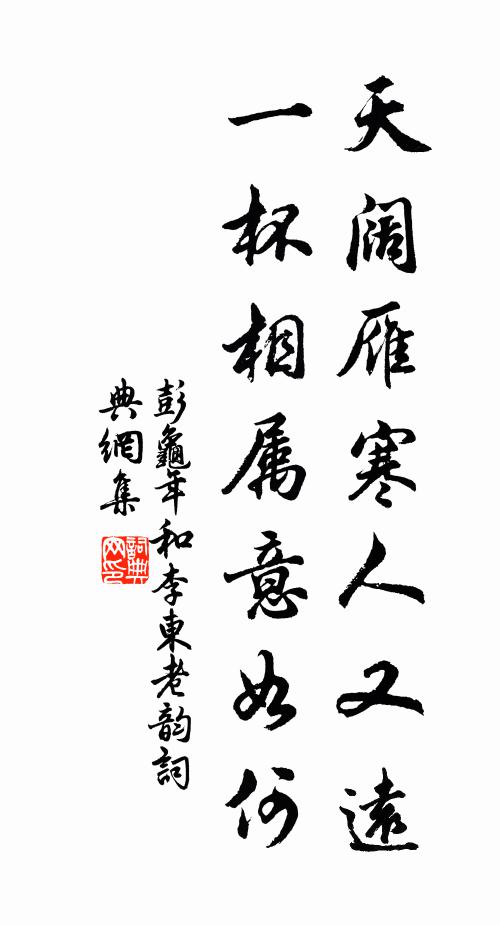 天阔雁寒人又遠
一杯相属意如何
彭龜年和李東老韵詞
典網集
詞典
网印